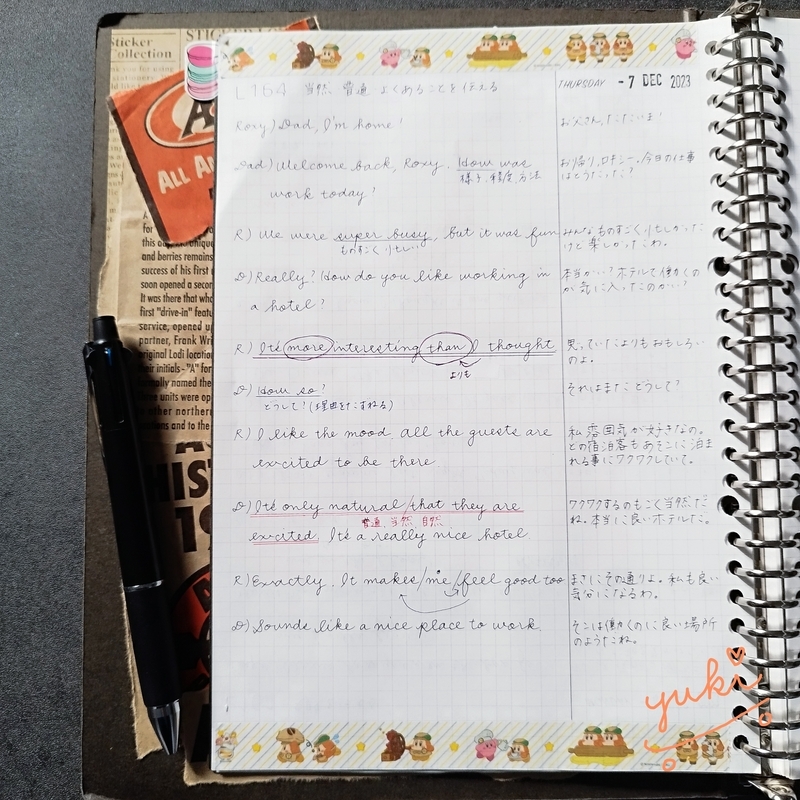 STICKER
Sticker
Collection
ALL AM
A
for
this
and berries remains
success of his first
soon opened a secon
It was there that wha
first "drive-in" featur
service, opened up
partner, Frank Wri
original Lodi locatio
their initials - "A" for
formally named the
units were op
other northern
and to the
HIS
19
L164 当然、普通、よくあることを伝える
THURSDAY -7 DEC 2023
Roxy) Dad, I'm home!
お父さん、ただいま!
Dad) Welcome back, Roxy. How was
様子、程度、方法
work today?
お帰り、ロキシー。今日の仕事
はどうだった?
R) We were super busy, but it was fun
ものすごく忙しい
みんなものすごく忙しかった
けど楽しかったわ。
D) Really? How do you like working in
a hotel?
本当かい?ホテルで働くの
が気に入ったのかい?
R) It's more interesting than I thought
よりも
思っていたよりもおもしろい
のよ。
D) How so?
どうして?(理由をたずねる)
それはまたどうして?
R) I like the mood. all the guests are
excited to be there.
私、雰囲気が好きなの。
どの宿泊客もあそこに泊ま
れる事にワクワクしていて。
D) It's only natural/that they are
普通、当然、自然、
excited. It's a really nice hotel
ワクワクするのもごく当然だ
ね。本当に良いホテルだ。
R) Exactly. It makes/me/feel good too
まさにその通りよ。私も良い
気分になるわ。
D) Sounds like a nice place to work.
そこは働くのに良い場所
のようだね。
yuki